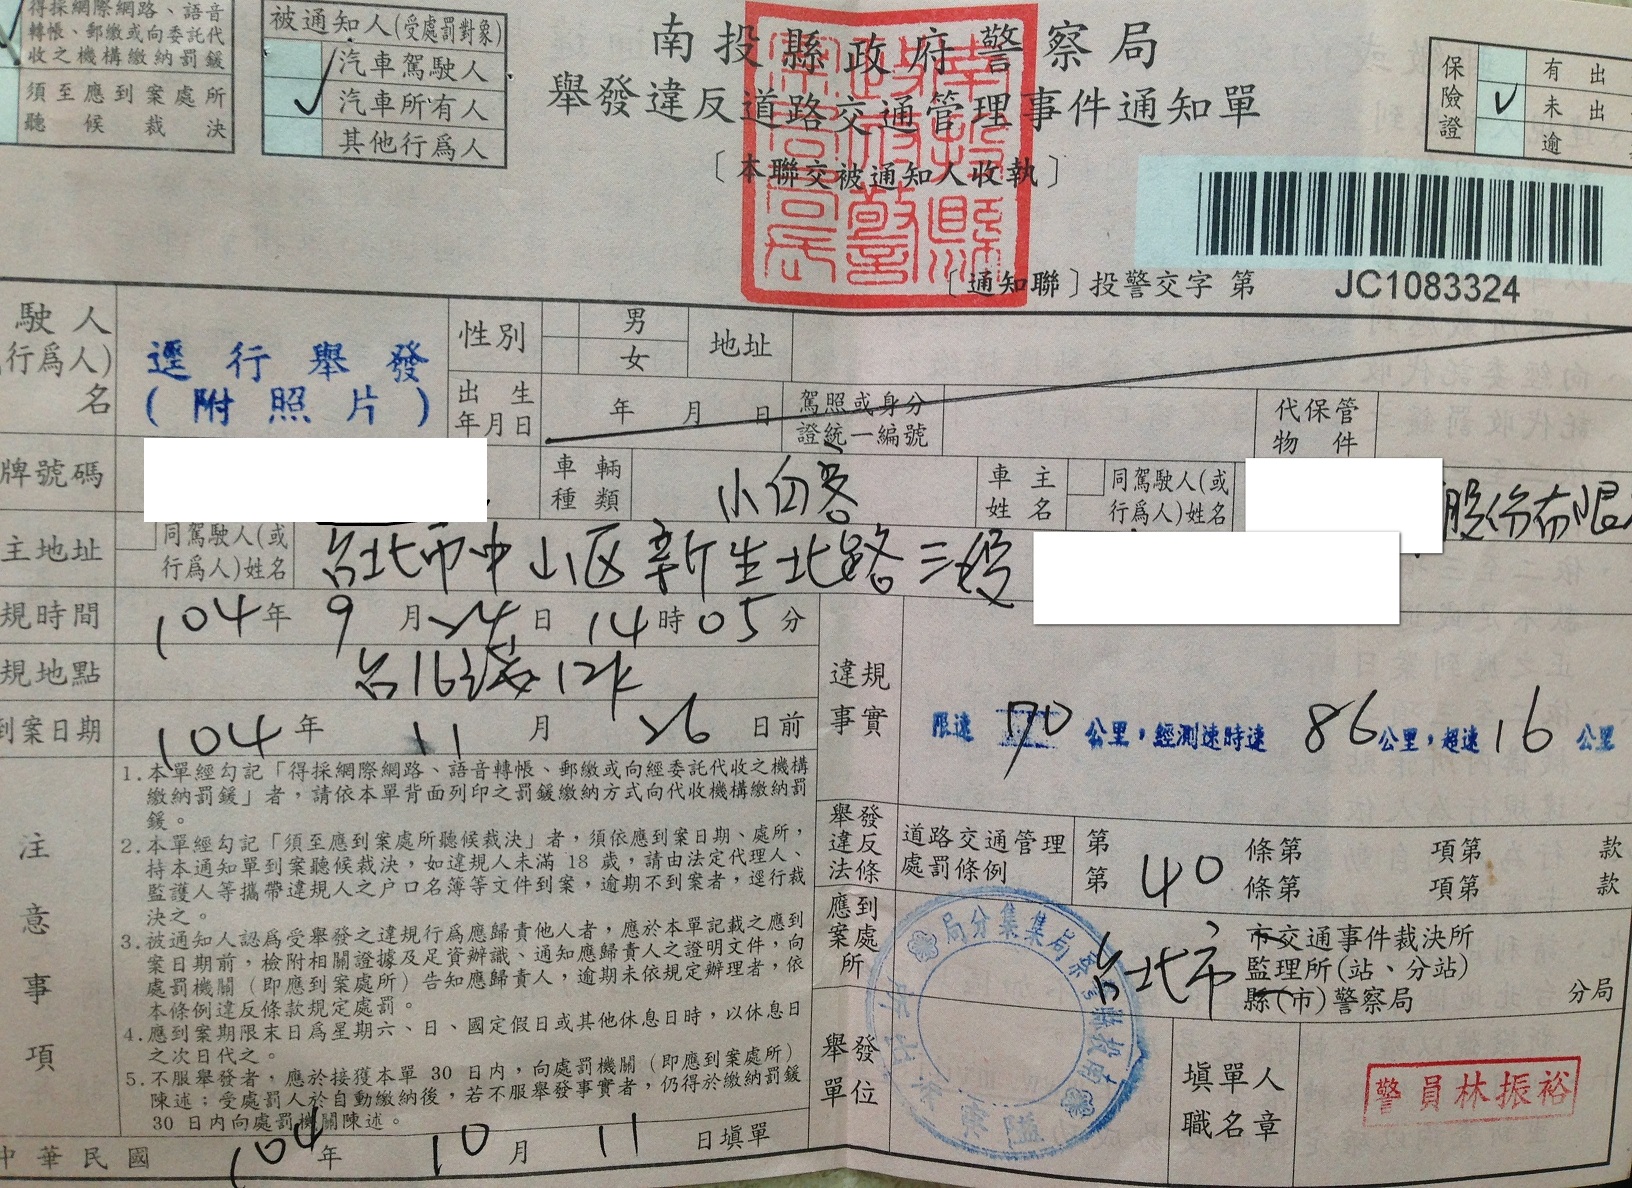 得採網際網路、語音
轉帳、郵繳或向委託代
收之機構繳納罰鍰
須至應到案處所
聽候裁決
被通知人(受處罰對象)
汽車駕駛人
汽車所有人
其他行爲人
南投縣政府警察局
舉發違反道路交通管理事件通知單
〔本聯交被通知人收執〕
保險證
有出
未出
逾
〔通知聯〕投警交字第 JC1083324
駛人
行爲人)
名
逕行舉發
(附照片)
性別
男
女
地址
出生
年月日
年 月 日
駕照或身分
證統一編號
代保管
物件
牌號碼
車輛
種類
小自客
車主
姓名
同駕駛人(或
行爲人)姓名
股份有限
主地址
同駕駛人(或
行爲人)姓名
台北市中山区新生北路三段
規時間
104年 9月24日 14時05分
規地點
台16線12K
到案日期
104年 11月 26日前
違規
事實
限速 70 公里,經測速時速 86公里,超速16 公里
注意事項
1.本單經勾記「得採網際網路、語音轉帳、郵繳或向經委託代收之機構
繳納罰鍰」者,請依本單背面列印之罰鍰繳納方式向代收機構繳納罰
鍰。
2.本單經勾記「須至應到案處所聽候裁決」者,須依應到案日期、處所,
持本通知單到案聽候裁決,如違規人未滿 18 歲,請由法定代理人、
監護人等攜帶違規人之戶口名簿等文件到案,逾期不到案者,逕行裁
決之。
3.被通知人認爲受舉發之違規行爲應歸責他人者,應於本單記載之應到
案日期前,檢附相關證據及足資辨識、通知應歸責人之證明文件,向
處罰機關(即應到案處所)告知應歸責人,逾期未依規定辦理者,依
本條例違反條款規定處罰。
4.應到案期限末日爲星期六、日、國定假日或其他休息日時,以休息日
之次日代之。
5.不服舉發者,應於接獲本單 30 日內,向處罰機關(即應到案處所)
陳述;受處罰人於自動繳納後,若不服舉發事實者,仍得於繳納罰鍰
30 日內向處罰機關陳述。
舉發
違反
法條
道路交通管理
處罰條例
第 條第 項第 款
第 40 條第 項第 款
應到
案處
所
台北市
市交通事件裁決所
監理所(站、分站)
縣(市)警察局 分局
舉發
單位
南投縣警察局集集分局
填單人
職名章
警員林振裕
中華民國 104年 10月 11日填單